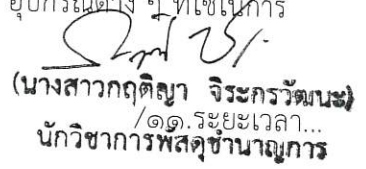 อุปกรณ์ต่าง ๆ ที่ใช้ในการ
(นางสาวกฤติญา จิระกรวัฒนะ)
/๑๑.ระยะเวลา...
นักวิชาการพัสดุชำนาญการ